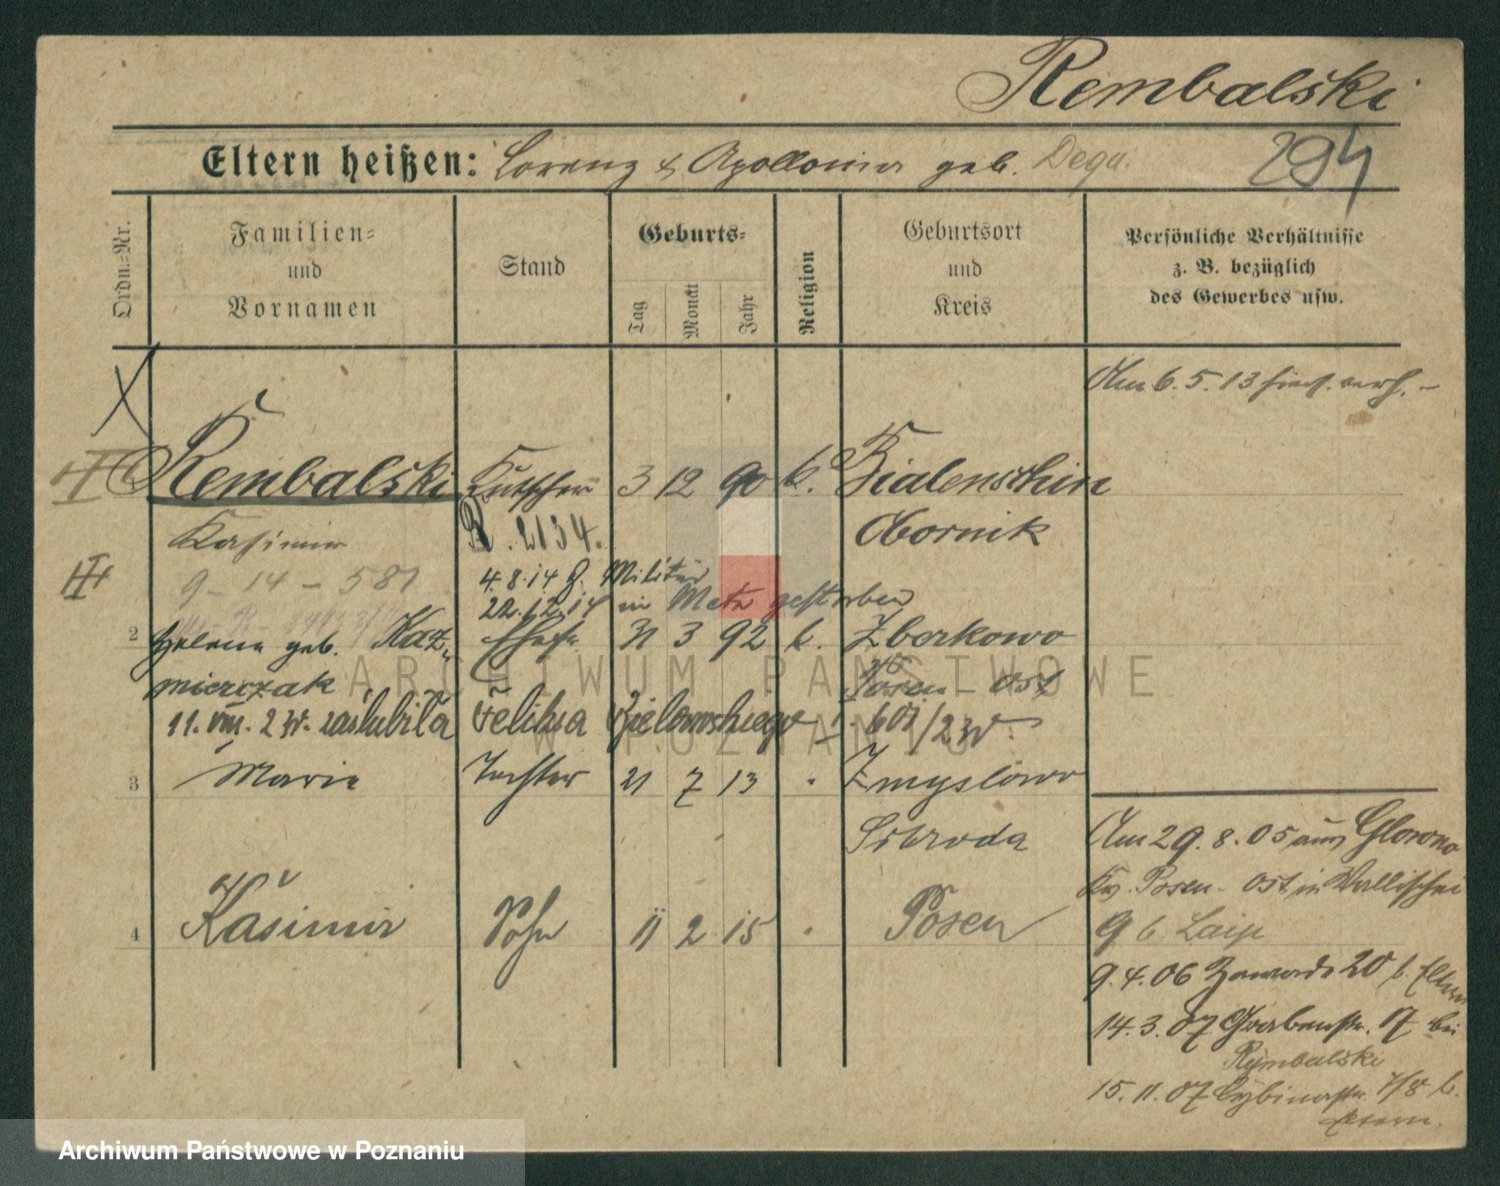 Rembalski
Eltern heißen: Lorenz & Apollonia geb. Dega.
294
Ordn.-Nr.
Familien-
und
Vornamen
Stand
Geburts-
Tag
Monat
Jahr
Religion
Geburtsort
und
Kreis
Persönliche Verhältnisse
z. B. bezüglich
des Gewerbes usw.
Am 6. 5. 13
Rembalski Kutscher 3 12 90 k. Bialenschin
Kasimir R. 2134. Obornik
9 - 14 - 581
4.8.14 z. Militär
22.12.14 in Metz gestorben
2 Helene geb. Kaz- Ehefr. 31 3 92 k. Zberkowo
mierczak Posen - Ost
11. VIII. 23r. zaślubiła Feliksa Zielonackiego 601/23r
3 Marie Tochter 21 7 13 " Zmyslowo
Schroda
4 Kasimir Sohn 11 2 15 " Posen
Am 29. 8. 05 aus Glowno
Kr. Posen - Ost in Wallischei
9 b.
9. 4. 06 Zawade 20 b. Eltern
14. 3. 07 Grabenstr. 17 bei
Rymbalski
15. 11. 07 Cybinastr. 7/8 b.
Eltern.
ARCHIWUM PAŃSTWOWE
W POZNANIU
Archiwum Państwowe w Poznaniu